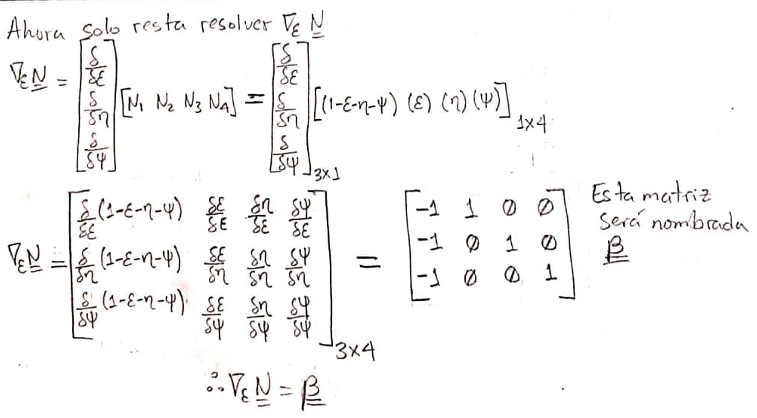 Ahora solo resta resolver ∇ε N
∇ε N = [δ/δε δ/δη δ/δψ] [N1 N2 N3 N4] = [δ/δε δ/δη δ/δψ]3x1 [(1-ε-η-ψ) (ε) (η) (ψ)]1x4
∇ε N = [δ/δε (1-ε-η-ψ) δε/δε δη/δε δψ/δε
δ/δη (1-ε-η-ψ) δε/δη δη/δη δψ/δη
δ/δψ (1-ε-η-ψ) δε/δψ δη/δψ δψ/δψ]3x4
= [-1 1 0 0
-1 0 1 0
-1 0 0 1]
Esta matriz
será nombrada
β
∴ ∇ε N = β